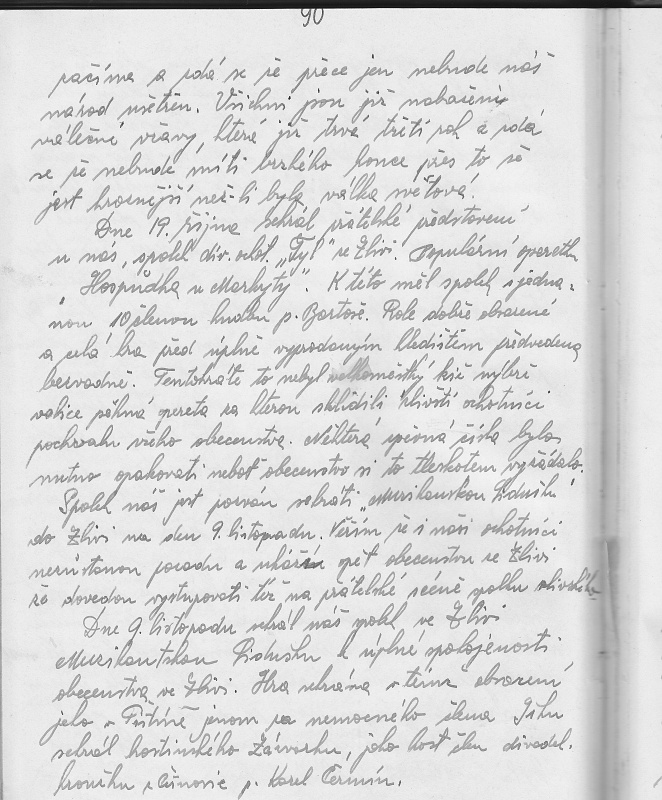 90
začíná a zdá se že přece jen nebude náš
národ ušetřen. Všichni jsou již nabaženi
válečné vřavy, která již trvá třetí rok a zdá
se že nebude míti brzkého konce přes to že
jest hroznější než-li byla válka světová.
Dne 19. října sehrál přátelské představení
u nás, spolek div. ochot. „Tyl" ze Zlivi. Populární operetu
„Hospůdka u Markyty". K této měl spolek sjedna-
nou 10 členou hudbu p. Bartoše. Role dobře obsazené
a celá hra před úplně vyprodaným hledištěm předvedena
bezvadně. Tentokráte to nebyl velkoměstký kič nýbrž
velice pěkná opereta za kterou sklidili Zlivští ochotníci
pochvalu všeho obecenstva. Některá zpěvná čísla bylo
nutno opakovati neboť obecenstvo si to tleskotem vyžádalo.
Spolek náš jest pozván sehráti „Muzikantskou Lidušku"
do Zlivi na den 9. listopadu. Věřím že i naši ochotníci
nezůstanou pozadu a ukáží opět obecenstvu ze Zlivi
že dovedou vystupovati též na přátelské scéně spolku zlivského
Dne 9. listopadu sehrál náš spolek ve Zlivi
Muzikantskou Lidušku k úplné spokojenosti
obecenstva ve Zlivi. Hra sehrána v témž obsazení
jako v Pištíně jenom za nemocného člena Jihu
sehrál hostinského Závorku, jako host člen divadel.
kroužku z Češnovic p. Karel Čermín.